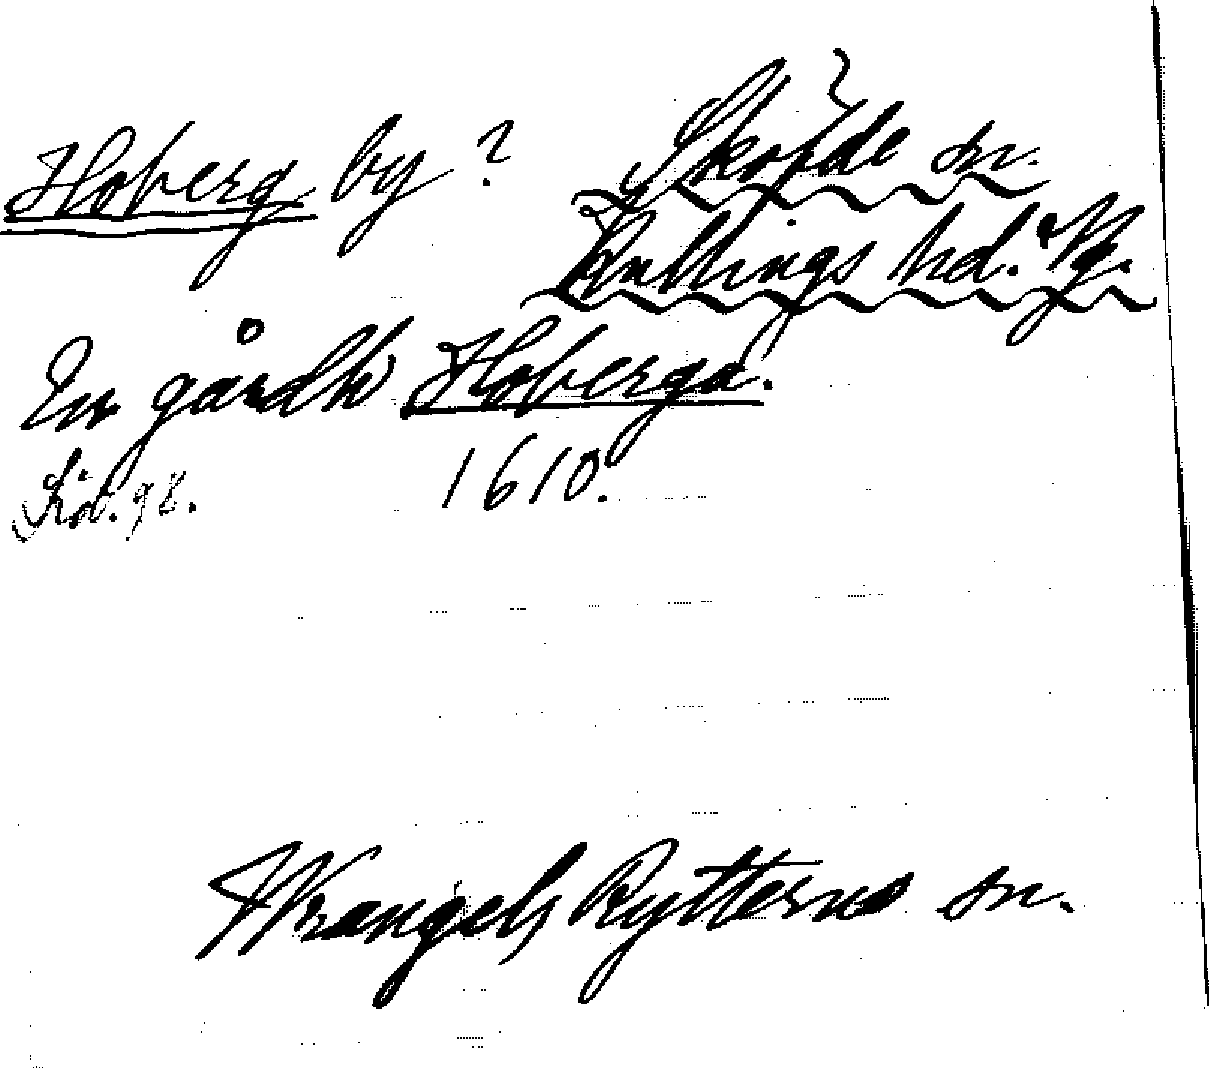 Hoberg by? Skofde sn.
Kullings hd. Vg.
En gårdh Hoberga.
Sid. 98. 1610.
Wrangels Rytterne sn.